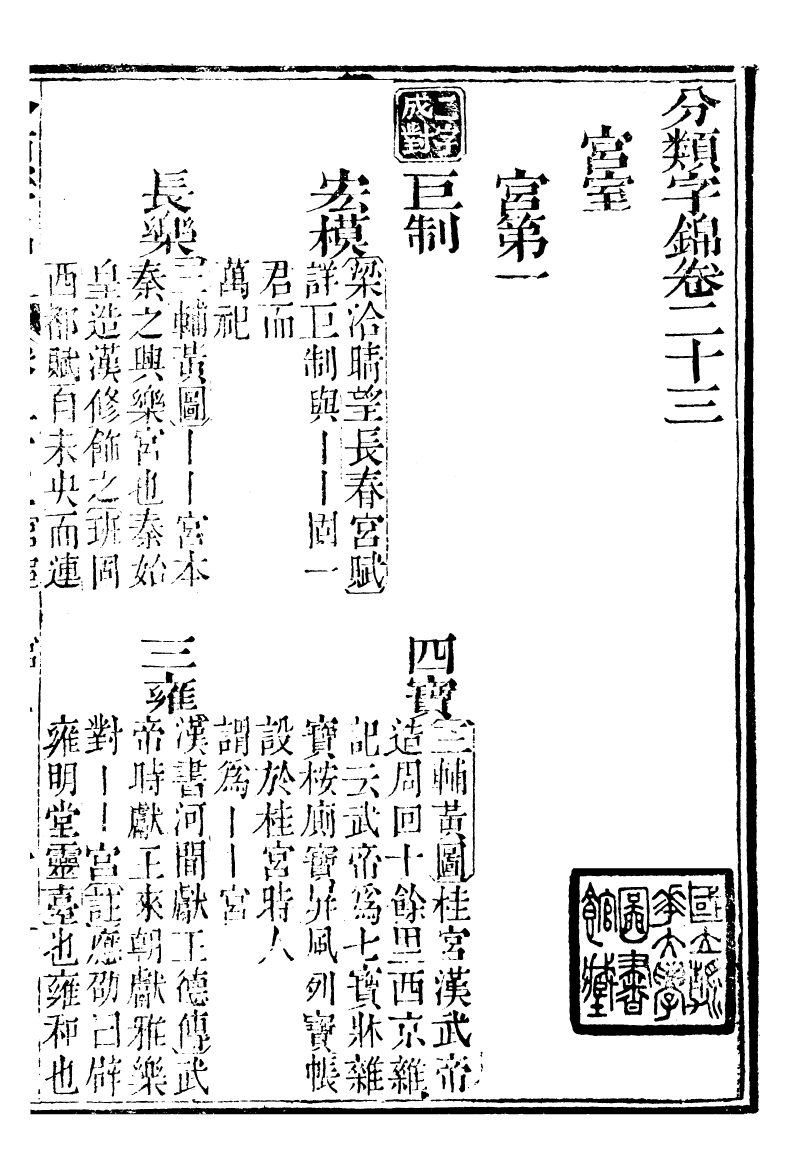 分類字錦卷二十三
宮室
宮第一
二字
成對
巨制
宏模
梁洽晴望長春宮賦
詳巨制與丨丨固一
君而
萬祀
四寶
三輔黃圖桂宮漢武帝
造周回十餘里西京雜
記云武帝爲七寶牀雜
寶桉廁寶屛風列寶帳
設於桂宮時人
謂爲丨丨宮
長樂
三輔黃圖丨丨宮本
秦之興樂宮也秦始
皇造漢修飾之班固
西都賦自未央而連
三雍
漢書河間獻王德傳武
帝時獻王來朝獻雅樂
對丨丨宮註應劭曰辟
雍明堂靈臺也雍和也
國立清
華大學
圖書
館藏